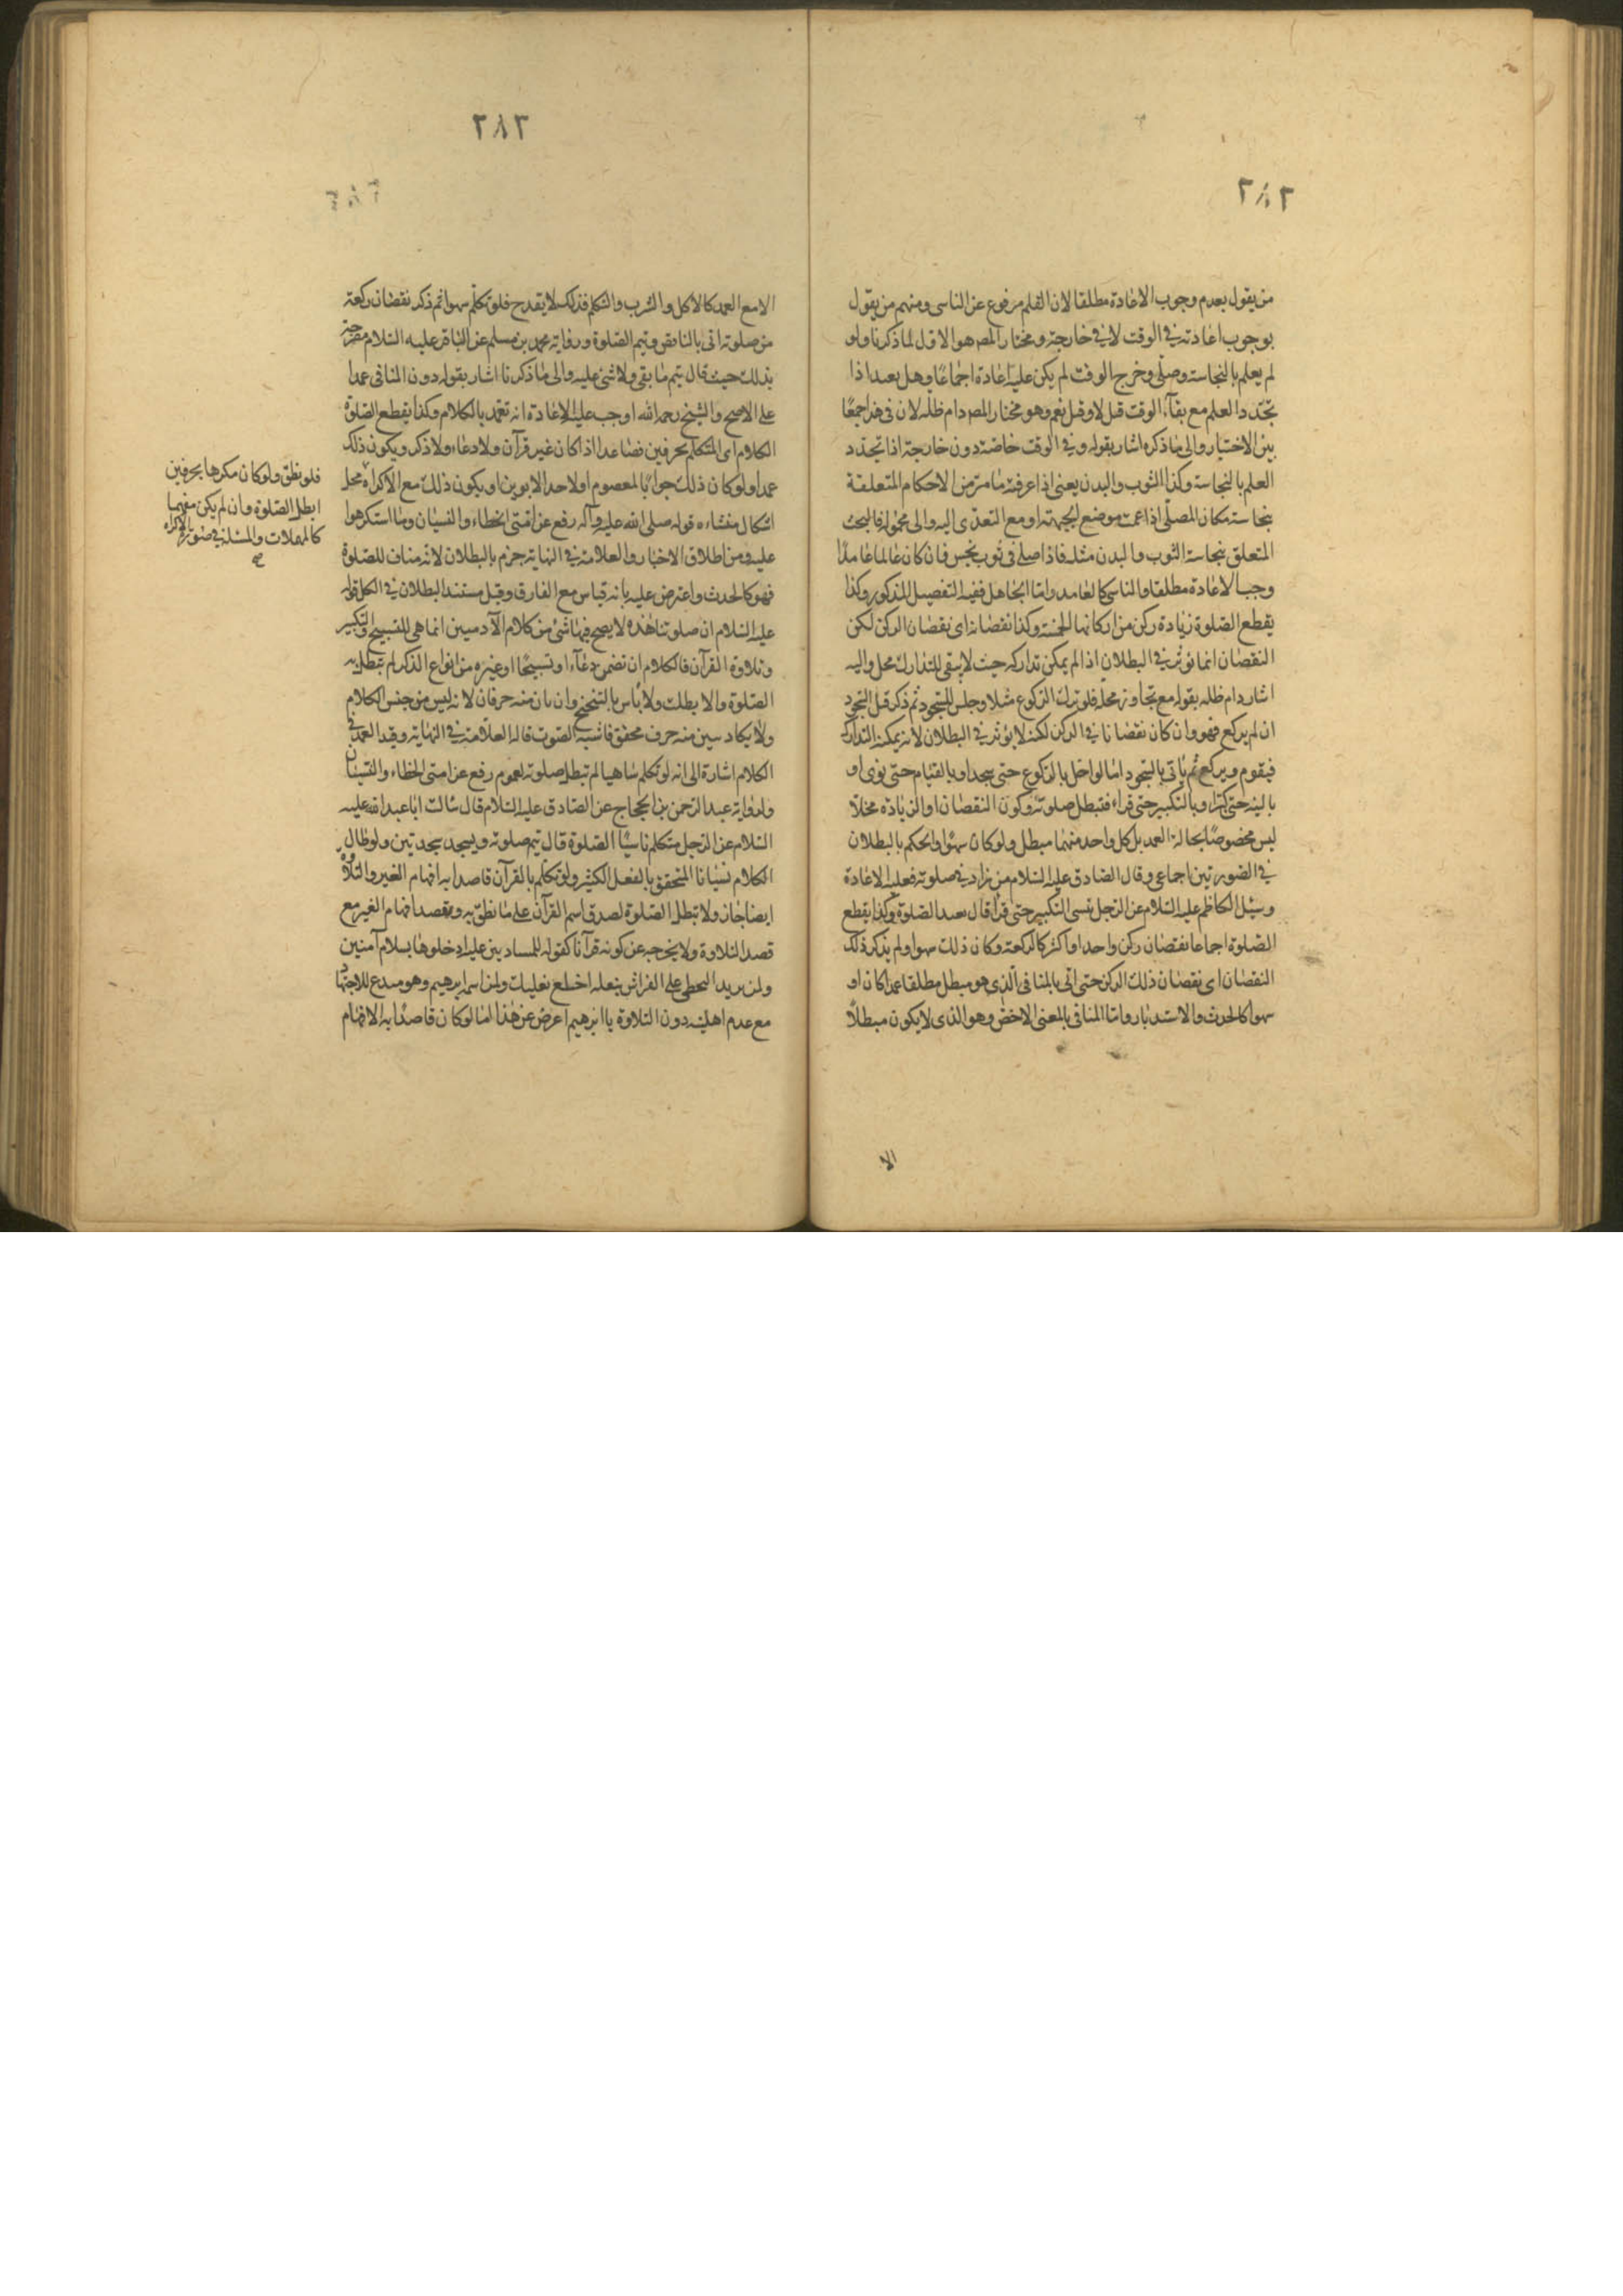 ٢٨٢
من يقول بعدم وجوب الاعادة مطلقا لان القلم مرفوع عن الناسى ومنهم من يقول
بوجوب اعادته فى الوقت لا فى خارجه ومختار المصـ هو الاول لما ذكرنا ولو
لم يعلم بالنجاسة وصلى وخرج الوقت لم يكن عليه اعادة اجماعا وهل يعيد اذا
تجدد العلم مع بقآء الوقت قيل لا وقيل نعم وهو مختار المصـ دام ظله لان فى هذا جمعًا
بين الاخبار والى ما ذكره اشار بقوله وفى الوقت خاصة دون خارجه اذا تجدد
العلم بالنجاسة وكذا الثوب والبدن يعنى اذا عرفت ما مرّ من الاحكام المتعلقة
بنجاسة مكان المصلّى اذا عمت موضع الجبهة او مع التعدّى اليه والى محموله فالبحث
المتعلق بنجاسة الثوب والبدن مثله فاذا صلى فى ثوب نجس فان كان عالما عامدًا
وجب الاعادة مطلقا والناسى كالعامد وامّا الجاهل ففيه التفصيل المذكور وكذا
يقطع الصّلوة زيادة ركن من اركانها الخمسة وكذا نقصانه اى نقصان الركن لكن
النقصان انما يؤثر فى البطلان اذا لم يمكن تداركه حيث لا يبقى للتدارك محل واليه
اشار دام ظله بقوله مع تجاوز محله فلو ترك الركوع مثلا وجلس للسجود ثم ذكر قبل السجود
ان لم يركع فهو وان كان نقصانا فى الركن لكنه لا يؤثر فى البطلان لانه يمكنه التدارك
فيقوم ويركع ثم ياتى بالسّجود امّا لو اخل بالركوع حتى سجد او بالقيام حتى نوى او
بالنية حتى كبر او بالتكبير حتى قراء فتبطل صلوته وكون النقصان او الزيادة مخلا
ليس مخصوصًا بحالة العمد بل كل واحد منهما مبطل ولو كان سهوًا والحكم بالبطلان
فى الصّورتين اجماعى وقال الصّادق عليه السّلام من زاد فى صلوته فعليه الاعادة
وسئل الكاظم عليه السّلام عن الرّجل نسى التكبير حتى قرأ قال يعيد الصّلوة وكذا يقطع
الصّلوة اجماعا نقصان ركن واحد او اكثر كالركعة وكان ذلك سهوا ولم يذكر ذلك
النقصان اى نقصان ذلك الركن حتى اتى بالمنافى الذى هو مبطل مطلقا عمدا كان او
سهوا كالحدث والاستدبار وامّا المنافى بالمعنى الاخصّ وهو الذى لا يكون مبطلاً
الا
٢٨٣
الا مع العمد كالاكل والشرب والتكلم فذلك لا يقدح فلو تكلّم سهوا ثم ذكر نقصان ركعة
من صلوته اتى بالناقص ويتم الصّلوة ورواية محمد بن مسلم عن الباقر عليه السّلام مصرحة
بذلك حيث قال يتم ما بقى ولا شئ عليه والى ما ذكرنا اشار بقوله دون المنافى عمدا
على الاصح والشيخ رحمه الله اوجب عليه الاعادة انه تعمّد بالكلام وكذا يقطع الصّلوة
الكلام اى التكلم بحرفين فصاعدا اذا كان غير قرآن ولا دعاء ولا ذكر ويكون ذلك
عمدا ولو كان ذلك جوابًا لمعصوم او لاحد الابوين او يكون ذلك مع الاكراه محل
اشكال منشاءه قوله صلى الله عليه وآله رفع عن امّتى الخطاء والنسيان وما استكرهوا
عليه ومن اطلاق الاخبار والعلامة فى النهاية جزم بالبطلان لانه مناف للصّلوة
فهو كالحدث واعترض عليه بانه قياس مع الفارق وقيل مستند البطلان فى الكل قوله
عليه السّلام ان صلوتنا هذه لا يصح فيها شئ من كلام الآدميين انما هى للتسبيح والتكبير
وتلاوة القرآن فالكلام ان تضمن دعآء او تسبيحًا او غيره من انواع الذكر لم تبطل به
الصّلوة والا بطلت ولا بأس بالتنحنح وان بان منه حرفان لانه ليس من جنس الكلام
ولا يكاد يبين منه حرف محقق فاشبه الصّوت قاله العلامة فى النهاية وقيد العمد فى
الكلام اشارة الى انه لو تكلم ساهيا لم تبطل صلوته لعموم رفع عن امتى الخطاء والنسيان
ولرواية عبد الرّحمن بن الحجاج عن الصّادق عليه السّلام قال سالت ابا عبد الله عليه
السّلام عن الرّجل يتكلم ناسيًا الصّلوة قال يتم صلوته ويسجد سجدتين ولو طال
الكلام نسيانا التحقق بالفعل الكثير ولو تكلم بالقرآن قاصدا به افهام الغير والتلاوة
ايضا جاز ولا تبطل الصّلوة لصدق اسم القرآن على ما نطق به وبقصد افهام الغير مع
قصد التلاوة ولا يخرجه عن كونه قرآنا كقوله للمستاذنين عليه ادخلوها بسلام آمنين
ولمن يريد التخطى على الفراش بنعله اخلع نعليك ولمن اسمه ابرهيم وهو مدع للاجتهاد
مع عدم اهليته دون التلاوة يا ابرهيم اعرض عن هذا امّا لو كان قاصدًا به الافهام
فلو نطق ولو كان مكرها بحرفين
ابطل الصّلوة وان لم يكن مفهما
كالمهملات والمسئلة فى صورة الاكراه